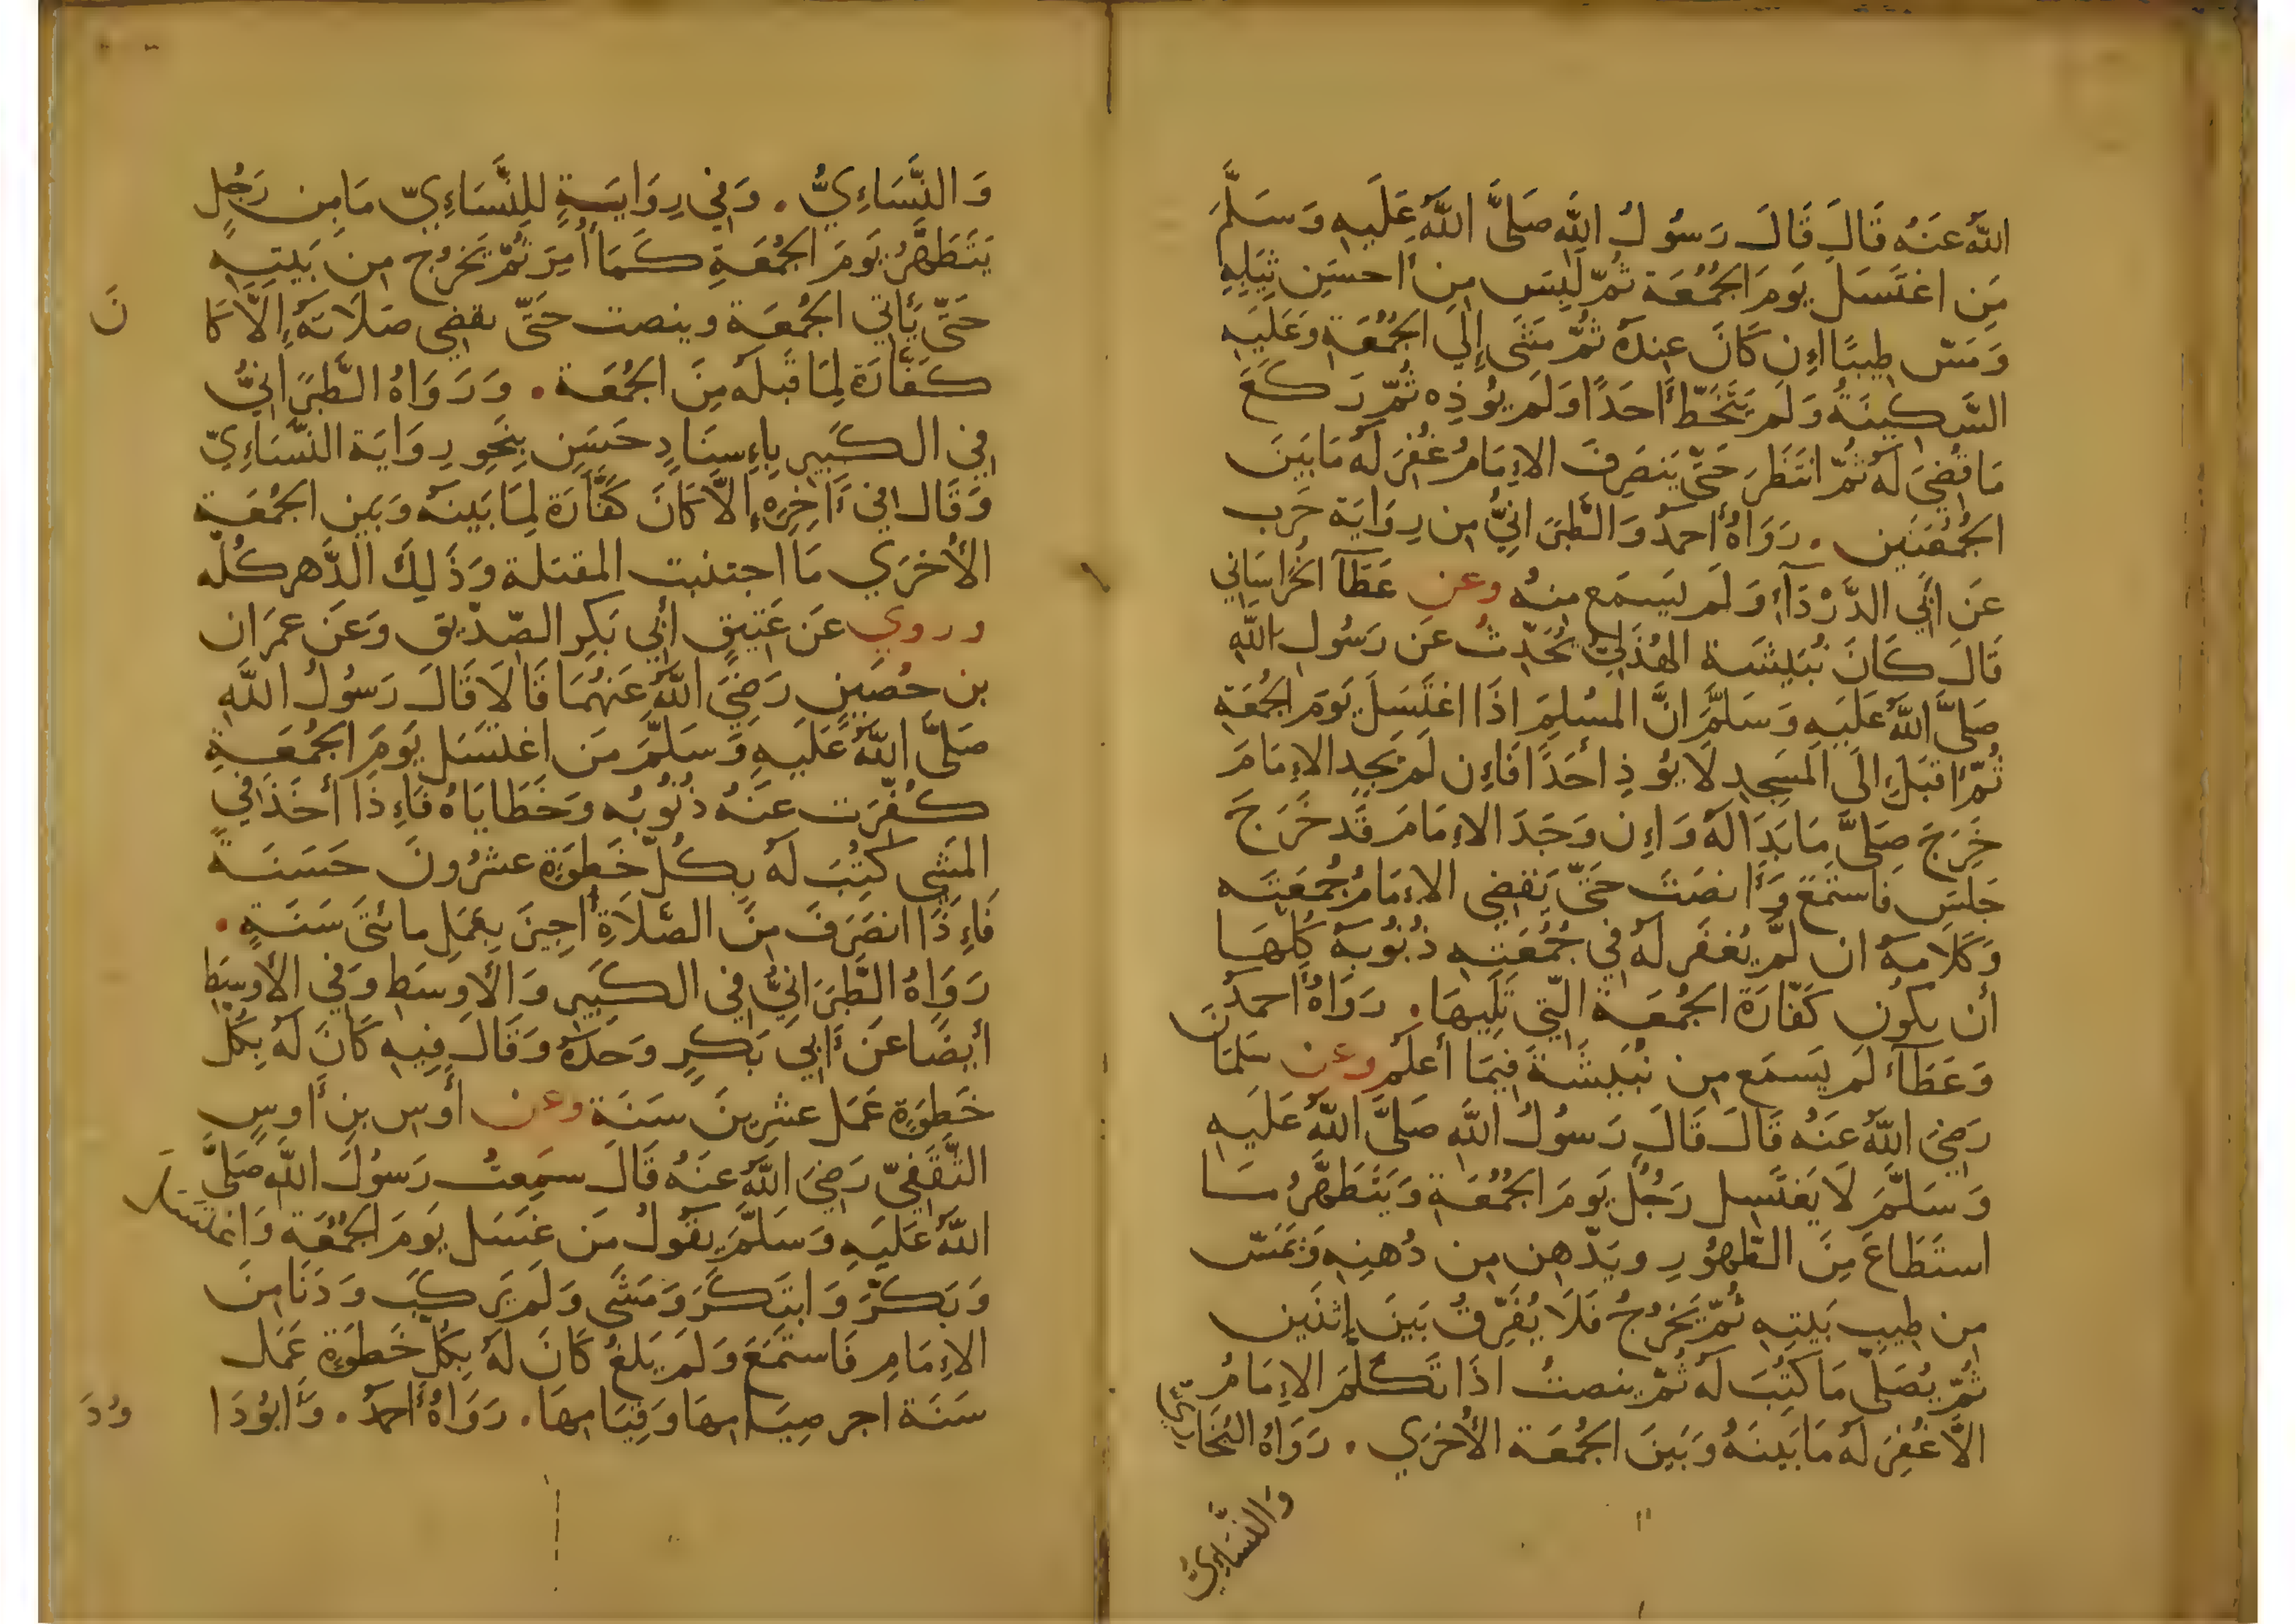 اللهُ عَنهُ قَالَ قَالَ رَسُولُ اللهِ صَلَّى اللهُ عَلَيهِ وَسَلَّمَ
مَن اغتَسَلَ يَومَ الجُمُعَة ثُمّ لَبِسَ مِن احسَنِ ثِيَابِهِ
وَمَسّ طِيبًا اِن كَانَ عِندَهُ ثُمّ مَشَى إِلَى الجُمُعَةِ وَعَلَيهِ
السَّكِينَةُ وَلَم يَتَخَطّ أَحَدًا وَلَم يُوذِه ثُمّ رَكَعَ
مَا قُضِيَ لَهُ ثُمّ انتَظَرَ حَتَّى يَنصَرِفَ الاِمَامُ غُفِرَ لَهُ مَا بَينَ
الجُمُعَتَين . رَوَاهُ أَحمدُ وَالطَّبَرَانِيُّ مِن رِوَايَة حَرب
عَن أَبِي الدَّرْدَآءِ وَلَم يَسمَع مِنهُ وعن عَطَآ الخُرَاسَاني
قَالَ كَانَ نُبَيشَة الهُذَلِيُّ يُحَدِّثُ عَن رَسُولِ اللهِ
صَلَّى اللهُ عَلَيهِ وَسَلَّمَ انَّ المُسلِمَ اذَا اغتَسَلَ يَومَ الجُمُعَةِ
ثُمّ أَقبَلَ إِلَى المَسجِدِ لَا يُوذِ أَحَدًا فَاِن لَم يَجِدِ الاِمَامَ
خَرَجَ صَلَّى مَا بَدَا لَهُ وَاِن وَجَدَ الاِمَامَ قَد خَرَجَ
جَلَسَ فَاستَمَعَ وَأَنصَتَ حَتَّى يَقضِي الاِمَامُ جُمُعَتَه
وَكَلَامهُ ان لَم يُغفَر لَهُ فِي جُمُعَتِهِ ذُنُوبهُ كُلّهَا
أن يكُون كَفّارَةَ الجُمُعَة الّتِي تَلِيهَا . رَوَاهُ أَحمَدُ
وَعَطَآء لَم يَسمَع مِن نُبَيشَةَ فِيمَا أَعلَم وعن سَلمَانَ
رَضِيَ اللهُ عَنهُ قَالَ قَالَ رَسُولُ اللهِ صَلَّى اللهُ عَلَيهِ
وَسَلَّمَ لَا يَغتَسِل رَجُلٌ يَومَ الجُمُعَةِ وَيَتَطَهَّرُ مَا
استَطَاعَ مِنَ الطّهُورِ ويَدّهِن مِن دُهنِهِ وَيَمَسّ
مِن طِيبِ بَيتِهِ ثُمّ يَخرُجُ فَلَا يُفَرِّقُ بَينَ اِثنَين
ثُمّ يُصَلِّي مَا كُتِبَ لَهُ ثُمّ ينصتُ اذَا تَكَلّمَ الاِمَامُ
الاَّ غُفِرَ لَهُ مَا بَينَهُ وَبَينَ الجُمُعَة الأُخرَي . رَوَاهُ البُخَارِيّ
وَالنَّسَاءِيُّ
وَالنَّسَاءِيُّ . وَفِي رِوَايَةٍ لِلنَّسَاءِيِّ مَا مِن رَجُلٍ
يَتَطَهَّرُ يَومَ الجُمُعَةِ كَمَا أُمِرَ ثُمّ يَخرُج مِن بَيتِهِ
حَتَّى يَأتي الجُمُعَة وينصت حَتَّى يقضِي صَلَاتَهُ إِلاَّ كَانَ
كَفَّارَة لِمَا قَبلَهُ مِنَ الجُمُعَة . وَرَوَاهُ الطَّبَرَانِيُّ
فِي الكَبِيرِ بِاِسنَادٍ حَسَنٍ بِنَحوِ رِوَايَة النَّسَاءِيّ
وَقَالَ فِي ءَاخِرِهِ إِلاَّ كَانَ كَفَّارَة لِمَا بَينَهُ وَبَينَ الجُمُعَة
الأُخرَي مَا اجتنبت المقتلة وَذَلِكَ الدَّهر كُلّه
وروي عَن عَتِيقٍ أَبِي بَكرٍ الصّدّيق وَعَن عمرَان
بن حُصَينٍ رَضِيَ اللهُ عَنهُمَا قَالَا قَالَ رَسُولُ اللهِ
صَلَّى اللهُ عَلَيهِ وَسَلَّمَ مَن اغتَسَلَ يَومَ الجُمُعَةِ
كُفِّرَت عَنهُ ذُنُوبُه وَخَطَايَاهُ فَاِذَا أَخَذَ فِي
المَشيِ كُتِبَ لَهُ بِكُلّ خَطوَةٍ عشرُونَ حَسَنَةً
فَاِذَا انصَرَفَ مِنَ الصّلَاةِ أُجِيزَ بِعَمَلِ مائتَي سَنَةٍ .
رَوَاهُ الطَّبَرَانِيُّ فِي الكَبِيرِ وَالأَوسَطِ وَفِي الأَوسَطِ
أَيضًا عَن أَبِي بَكرٍ وَحدَهُ وَقَالَ فِيهِ كَانَ لَهُ بِكُلّ
خَطوَةٍ عَمَل عشرِينَ سَنَة وعن أَوسِ بنِ أَوسٍ
الثَّقَفِيّ رَضِيَ اللهُ عَنهُ قَالَ سَمِعتُ رَسُولَ اللهِ صَلَّى
اللهُ عَلَيهِ وَسَلَّمَ يَقُولُ مَن غَسَل يَومَ الجُمُعَة وَاغتَسَلَ
وَبَكّرَ وَابتَكَرَ وَمَشَى وَلَم يَركَب وَدَنَا مِنَ
الاِمَامِ فَاستَمَعَ وَلَم يَلغُ كَانَ لَهُ بِكُلّ خَطوَةٍ عَمَل
سَنَة اجر صِيَامِهَا وَقِيَامِهَا . رَوَاهُ أَحمَدُ . وَأَبُو دَاوُدَ